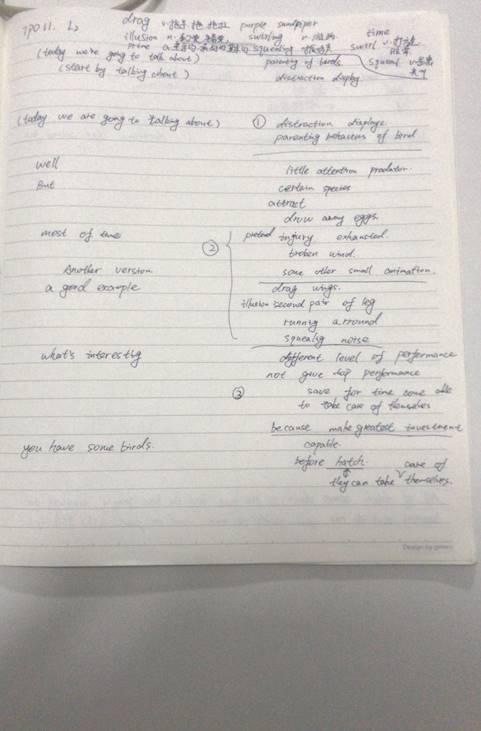 TPO 11. L2 drag v. purple sandpiper
illusion n. swirling v. time
prime squealing swirl v.
(today we're going to talk about) parenting of birds squeal v.
(start by talking about) distraction display
(today we are going to talking about) ① distraction displays
parenting behaviors of bird
well little attention predator.
But certain species
attract
draw away eggs.
most of time pretend injury exhausted.
②
broken wind.
Another version some other small animation.
a good example drag wings.
illusion second pair of leg
running arround
squealing noise
what's interesting different level of performance
not give top performance
③ save for time come able
to take care of themselves
because make greatest investment
you have some birds. capable.
before hatch. care of
they can take themselves.
Design by